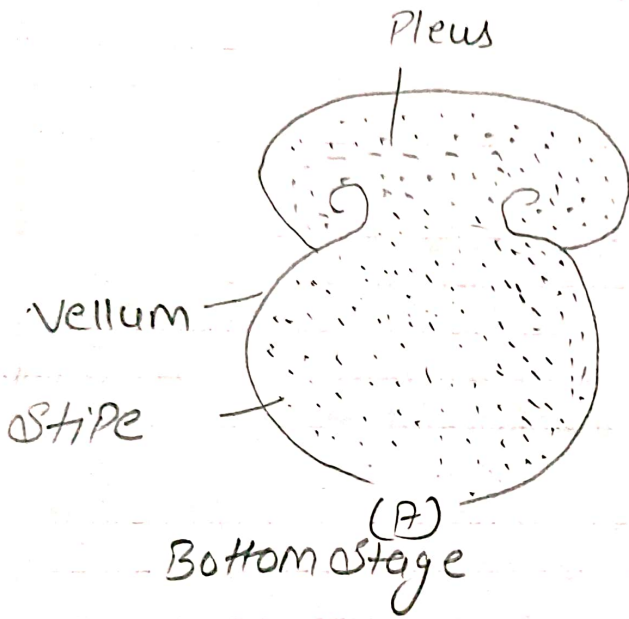 Pleus
Vellum
Stipe
(A)
Bottom Stage